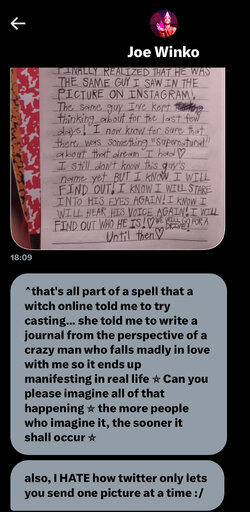 Joe Winko
FINALLY REALIZED THAT HE WAS
THE SAME GUY I SAW IN THE
PICTURE ON INSTAGRAM,
The same guy I've kept
thinking about for the last few
days! I now know for sure that
there was something "Supernatural"
about that dream I had♡
I still don't know this guy's
name yet BUT I KNOW I WILL
FIND OUT, I KNOW I WILL STARE
INTO HIS EYES AGAIN! I KNOW I
WILL HEAR HIS VOICE AGAIN! I WILL
FIND OUT WHO HE IS!♡ WE WILL GO FOR A
DRIVE!
Until then♡
18:09
^that's all part of a spell that a
witch online told me to try
casting... she told me to write a
journal from the perspective of a
crazy man who falls madly in love
with me so it ends up
manifesting in real life ☆ Can you
please imagine all of that
happening ☆ the more people
who imagine it, the sooner it
shall occur ☆
also, I HATE how twitter only lets
you send one picture at a time :/